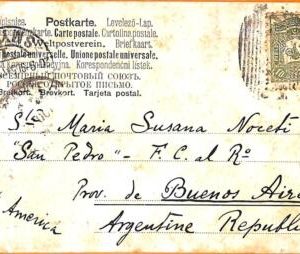 Postkarte. Levelező-Lap.
Carte postale. Cartolina postale.
Weltpostverein. Brievkaart.
Union postale universelle. Unione postale universale.
Korespondenční lístek.
ВСЕМІРНЫЙ ПОЧТОВЫЙ СОЮЗЪ.
ОТКРЫТОЕ ПИСЬМО.
Brefkort. Brevkort. Tarjeta postal.
S. Maria Susana Noceti
"San Pedro" - F.C. al R°
Prov. de Buenos Aire
America
Argentine Republi